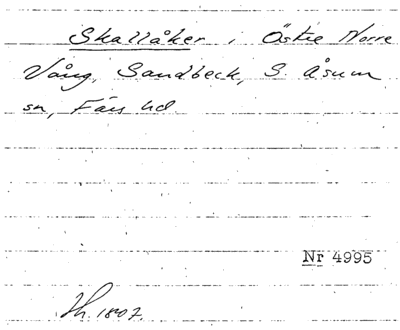 Skallåker i Östre Norre
Vång, Sandbeck, S. Åsum
sn, Färs hd
Nr 4995
Sk. 1807.